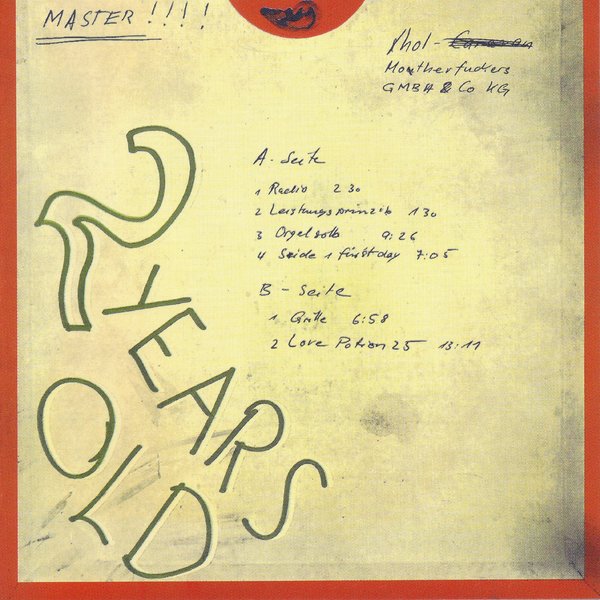 MASTER !!!!
Motherfuckers
GMBH & Co KG
A - Seite
1 Radio 2 30
2 Leistungsprinzib 1 30
3 Orgelsolo 9:26
4 Seide 1 first day 7:05
B - Seite
1 Grille 6:58
2 Love Potion 25 13:11
2
YEARS
OLD